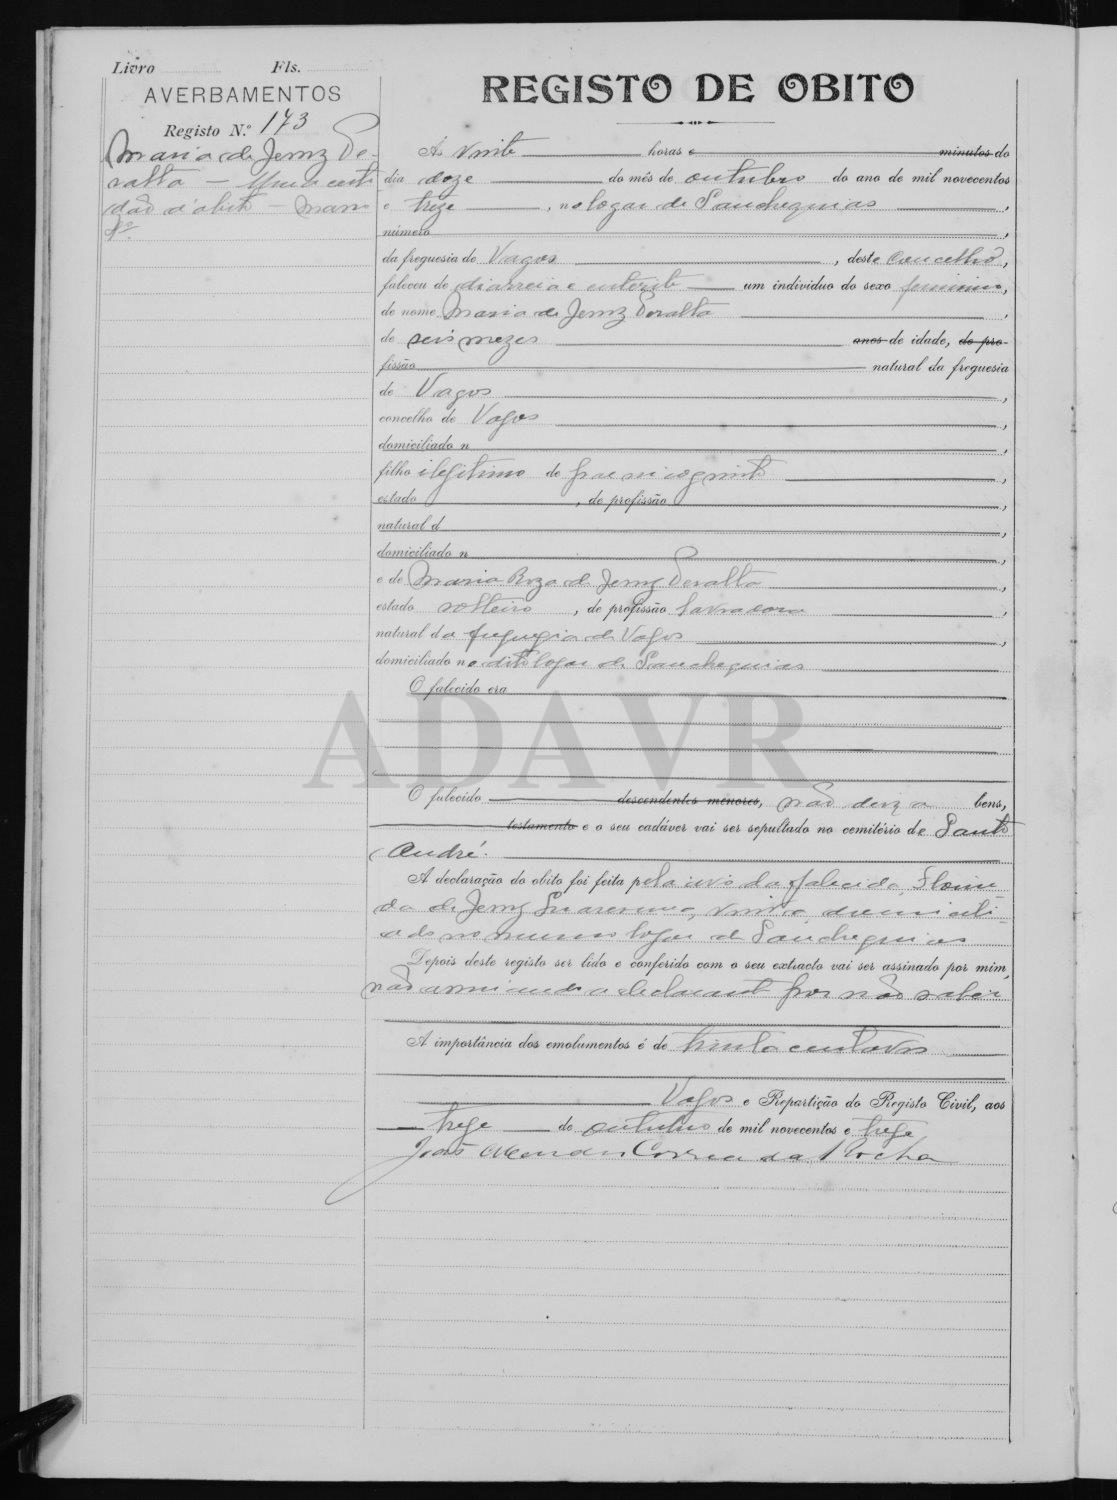 Livro Fls.
AVERBAMENTOS
Registo N.º 173
Maria de Jesus Pe-
ralta — Uma certi
dão d'obito — num
1º
REGISTO DE OBITO
Ás vinte horas e minutos do
dia doze do mês de outubro do ano de mil novecentos
e treze, no logar de Sanchequias,
número,
da freguesia de Vagos, deste concelho,
faleceu de diarreia e enterite um individuo do sexo feminino,
de nome Maria de Jesus Peralta,
de seis mezes anos de idade, de pro-
fissão natural da freguesia
de Vagos,
concelho de Vagos,
domiciliado n,
filho ilegitimo de pae incognito,
estado, de profissão,
natural d,
domiciliado n,
e de Maria Roza de Jesus Peralta,
estado solteiro, de profissão lavradora,
natural da freguezia de Vagos,
domiciliado no dito logar de Sanchequias
O falecido era
ADAVR
O falecido descendentes menores, não deixa bens,
testamento e o seu cadáver vai ser sepultado no cemitério de Santo
André.
A declaração do obito foi feita pela avó da falecida,
da de Jesus, viuva, domicili-
ada no mesmo logar de Sanchequias
Depois deste registo ser lido e conferido com o seu extracto vai ser assinado por mim,
não assinando a declarante por não saber
A importância dos emolumentos é de trinta centavos
Vagos e Repartição do Registo Civil, aos
treze de outubro de mil novecentos e treze
João Mendes Correia da Rocha